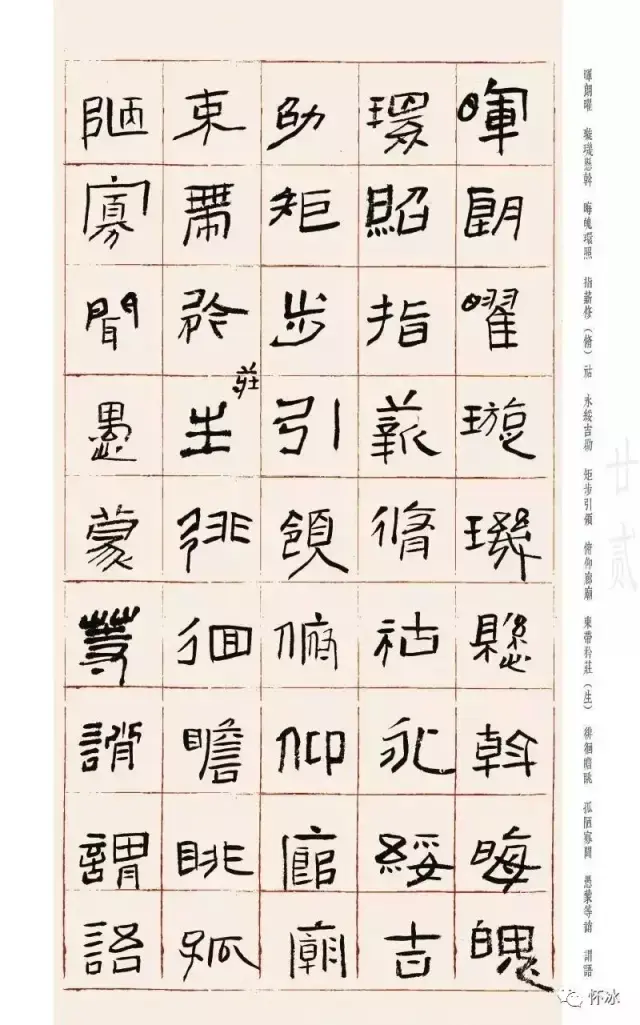 暉朗曜 璇璣懸斡 晦魄環照 指薪修（脩）祜 永綏吉劭 矩步引領 俯仰廊廟 束帶矜莊（生） 徘徊瞻眺 孤陋寡聞 愚蒙等誚 謂語
廿貳
暉朗曜璇璣懸斡晦魄
環照指薪脩祜永綏吉
劭矩步引領俯仰廊廟
束帶矜生徘徊瞻眺孤
莊
陋寡聞愚蒙等誚謂語
怀冰